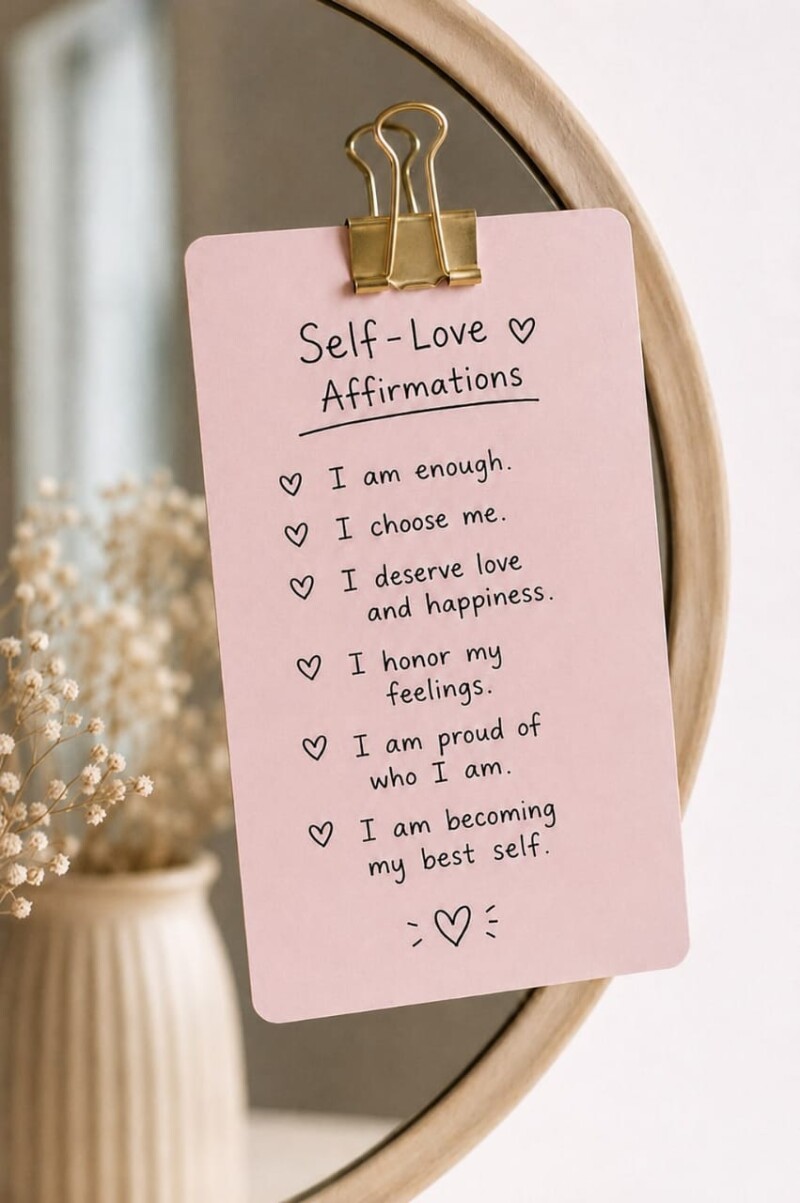 Self-Love ♡
Affirmations
♡ I am enough.
♡ I choose me.
♡ I deserve love
and happiness.
♡ I honor my
feelings.
♡ I am proud of
who I am.
♡ I am becoming
my best self.
♡